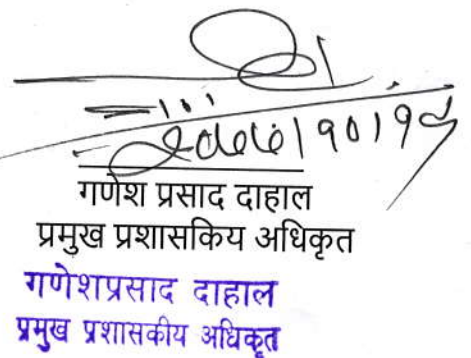 गणेश प्रसाद दाहाल
प्रमुख प्रशासकिय अधिकृत
गणेशप्रसाद दाहाल
प्रमुख प्रशासकीय अधिकृत